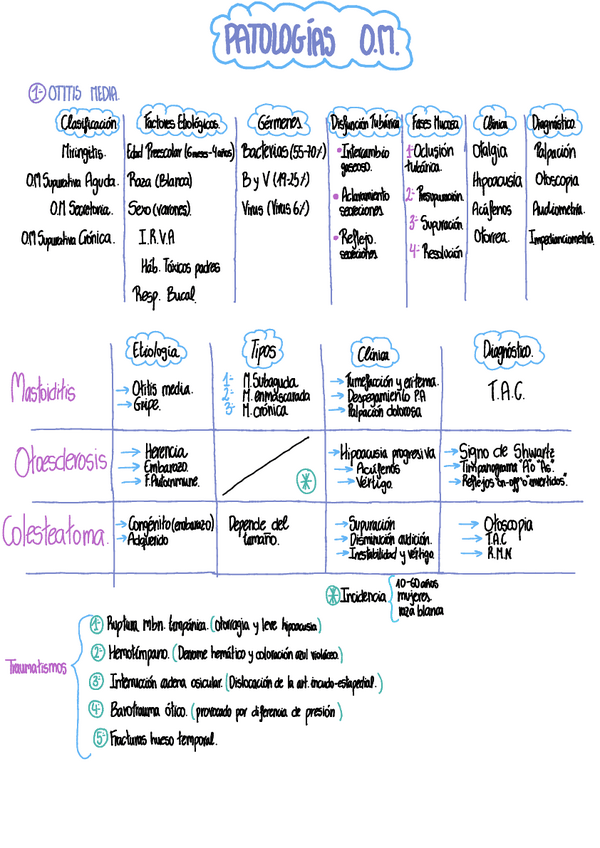 PATOLOGÍAS O.M.
1- OTITIS MEDIA.
Clasificación
Miringitis.
O.M Supurativa Aguda.
O.M Secretoria.
O.M Supurativa Crónica.
Factores Etiológicos.
Edad Preescolar (6 meses-4 años)
Raza (Blanca)
Sexo (varones).
I.R.V.A
Háb. Tóxicos padres
Resp. Bucal.
Gérmenes
Bacterias (55-70%)
B y V (19-25%)
Virus (Virus 6%)
Disfunción Tubárica
• Intercambio
gaseoso.
• Aclaramiento
secreciones
• Reflejo.
secreciones
Fases Mucosa
1- Oclusión
tubárica.
2- Presupuración
3- Supuración
4- Resolución
Clínica
Otalgia
Hipoacusia
Acúfenos
Otorrea.
Diagnóstico
Palpación
Otoscopia
Audiometría.
Impedanciometría.
Etiología
Tipos
Clínica
Diagnóstico.
Mastoiditis
→ Otitis media.
→ Gripe.
1- M. Subaguda
2- M. enmascarada
3- M. Crónica
→ Tumefacción y eritema.
→ Despegamiento P.A
→ Palpación dolorosa
T.A.C.
Otoesclerosis
→ Herencia
→ Embarazo.
→ F. Autoinmune.
*
→ Hipoacusia progresiva
→ Acúfenos
→ Vértigo.
→ Signo de Shwartz
→ Timpanograma "A" o "As".
→ Reflejos "on-off" o "invertidos".
Colesteatoma.
→ Congénito (embarazo)
→ Adquirido
Depende del
tamaño.
→ Supuración
→ Disminución audición.
→ Inestabilidad y vértigo.
→ Otoscopia
→ T.A.C
→ R.M.N
* Incidencia
10-60 años
mujeres
raza blanca
Traumatismos
1- Ruptura Mbn. timpánica. (otorragia y leve hipoacusia)
2- Hemotímpano. (Derrame hemático y coloración azul violáceo.)
3- Interrucción cadena osicular. (Dislocación de la art. incudo-estapedial.)
4- Barotrauma ótico. (provocado por diferencia de presión)
5- Fracturas hueso temporal.